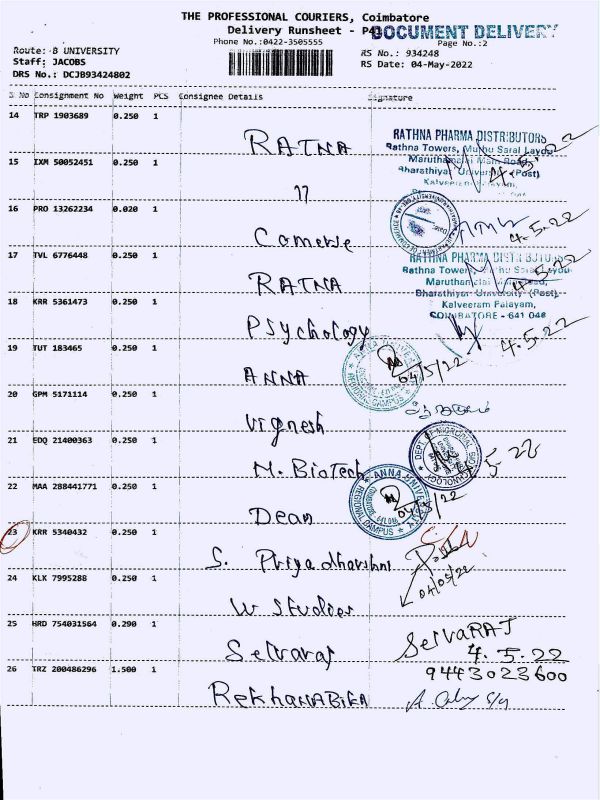 THE PROFESSIONAL COURIERS, Coimbatore
Delivery Runsheet - P4
DOCUMENT DELIVERY
Phone No.:0422-3505555
Page No.:2
Route: B UNIVERSITY
RS No.: 934248
Staff: JACOBS
RS Date: 04-May-2022
DRS No.: DCJB93424802
S No Consignment No Weight PCS Consignee Details Signature
14 TRP 1903689 0.250 1
RATNA
RATHNA PHARMA DISTRIBUTORS
Rathna Towers, Muthu Saral Layou
Maruthamalai Main Road,
Bharathiyar University (Post)
Kalveeram Palayam,
4.5.22
15 IXM 50052451 0.250 1
17
16 PRO 13262234 0.020 1
4.5.22
17 TVL 6776448 0.250 1
RATNA
RATHNA PHARMA DISTRIBUTORS
Rathna Towers, Muthu Saral Layou
Maruthamalai Main Road,
Bharathiyar University (Post),
Kalveeram Palayam,
COIMBATORE - 641 046
4.5.22
18 KRR 5361473 0.250 1
Psychology
4.5.22
19 TUT 183465 0.250 1
ANNA
REGIONAL CAMPUS
04/5/22
20 GPM 5171114 0.250 1
Vignesh
21 EDQ 21400363 0.250 1
M. BioTech
4-5-22
22 MAA 288441771 0.250 1
Dean
ANNA UNIVERSITY
REGIONAL CAMPUS
COIMBATORE 641 046
04/5/22
23 KRR 5340432 0.250 1
S. Priyadharshni
04/05/22
24 KLX 7995288 0.250 1
W Studies
25 HRD 754031564 0.290 1
Selvaraj
SelvaRAJ
4.5.22
9443023600
26 TRZ 200486296 1.500 1
RekhaNABIKA